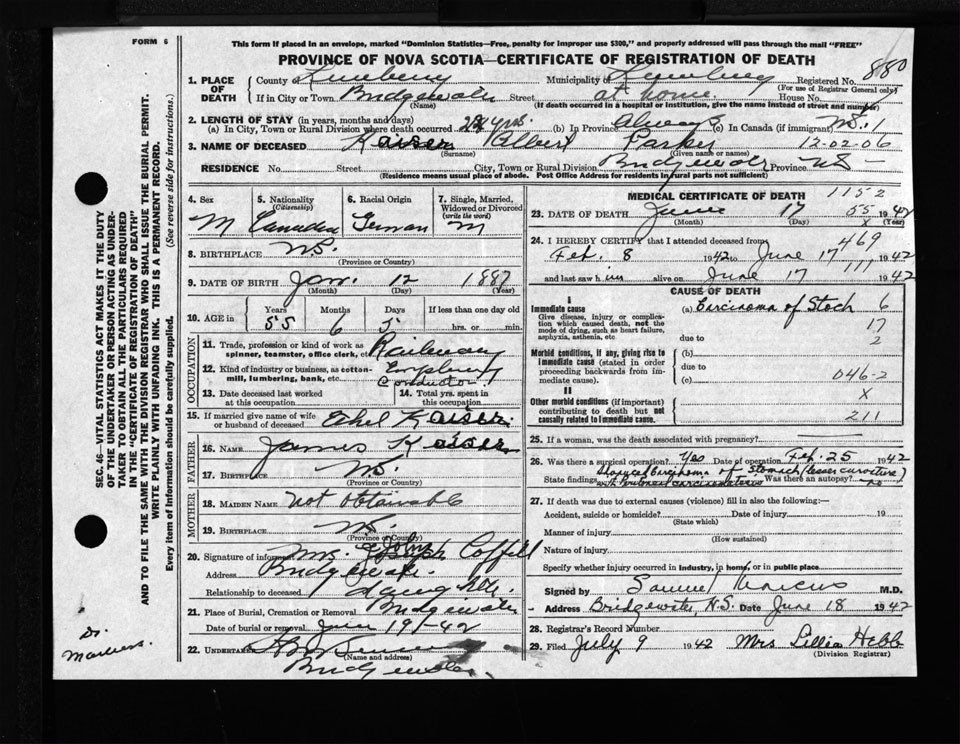 FORM 6
This form if placed in an envelope, marked "Dominion Statistics—Free, penalty for improper use $300," and properly addressed will pass through the mail "FREE"
PROVINCE OF NOVA SCOTIA—CERTIFICATE OF REGISTRATION OF DEATH
SEC. 46—VITAL STATISTICS ACT MAKES IT THE DUTY OF THE UNDERTAKER OR PERSON ACTING AS UNDERTAKER TO OBTAIN ALL THE PARTICULARS REQUIRED IN THE "CERTIFICATE OF REGISTRATION OF DEATH" AND TO FILE THE SAME WITH THE DIVISION REGISTRAR WHO SHALL ISSUE THE BURIAL PERMIT.
WRITE PLAINLY WITH UNFADING INK. THIS IS A PERMANENT RECORD.
Every item of Information should be carefully supplied. (See reverse side for instructions.)
1. PLACE OF DEATH County of Lunenburg Municipality of Lunenburg Registered No. 880
(For use of Registrar General only)
If in City or Town Bridgewater Street at home House No.
(Name) (If death occurred in a hospital or institution, give the name instead of street and number)
2. LENGTH OF STAY (in years, months and days)
(a) In City, Town or Rural Division where death occurred 24 yrs. (b) In Province Always (c) In Canada (if immigrant) N.S. 1
3. NAME OF DECEASED Kaiser Albert Parker 12-02-06
(Surname) (Given name or names)
RESIDENCE No. Street City, Town or Rural Division Bridgewater Province NS
(Residence means usual place of abode. Post Office Address for residents in rural parts not sufficient)
4. Sex M
5. Nationality (Citizenship) Canadian
6. Racial Origin German
7. Single, Married, Widowed or Divorced (write the word) M
8. BIRTHPLACE N.S.
(Province or Country)
9. DATE OF BIRTH Jan. 12 1887
(Month) (Day) (Year)
10. AGE in Years 55 Months 6 Days 5 If less than one day old hrs. or min.
OCCUPATION
11. Trade, profession or kind of work as spinner, teamster, office clerk, etc. Railway
12. Kind of industry or business, as cotton-mill, lumbering, bank, etc. Employee
Conductor.
13. Date deceased last worked at this occupation
14. Total yrs. spent in this occupation
15. If married give name of wife or husband of deceased Ethel Kaiser
FATHER
16. NAME James Kaiser
17. BIRTHPLACE N.S.
(Province or Country)
MOTHER
18. MAIDEN NAME Not Obtainable
19. BIRTHPLACE N.S.
(Province or Country)
20. Signature of informant Mrs. John Coffill
Address Bridgewater.
Relationship to deceased Daughter.
21. Place of Burial, Cremation or Removal Bridgewater
Date of burial or removal June 19/-42
22. UNDERTAKER
(Name and address)
Bridgewater.
Dr.
Marcus.
MEDICAL CERTIFICATE OF DEATH 1152
23. DATE OF DEATH June 17 55 1942
(Month) (Day)
24. I HEREBY CERTIFY that I attended deceased from 469
Feb. 8 1942 to June 17 1942
111
and last saw him alive on June 17 1942
CAUSE OF DEATH
I
Immediate cause
Give disease, injury or complication which caused death, not the mode of dying, such as heart failure, asphyxia, asthenia, etc
(a) Carcinoma of Stoch 6
17
2
due to
Morbid conditions, if any, giving rise to immediate cause (stated in order proceeding backwards from immediate cause).
(b)
due to
(c) 046-2
II x
Other morbid conditions (if important) contributing to death but not causally related to immediate cause. 211
25. If a woman, was the death associated with pregnancy?
26. Was there a surgical operation? Yes Date of operation Feb. 25 1942
Carcinoma of Stomach (lesser curvature)
State findings with Peritoneal carcinomatosis Was there an autopsy? no
27. If death was due to external causes (violence) fill in also the following:—
Accident, suicide or homicide? Date of injury 19
(State which)
Manner of injury
(How sustained)
Nature of injury
Specify whether injury occurred in Industry, in home, or in public place
Signed by Samuel Marcus M.D.
Address Bridgewater, N.S. Date June 18 1942
28. Registrar's Record Number
29. Filed July 9 1942 Mrs Lillia Hebb
(Division Registrar)